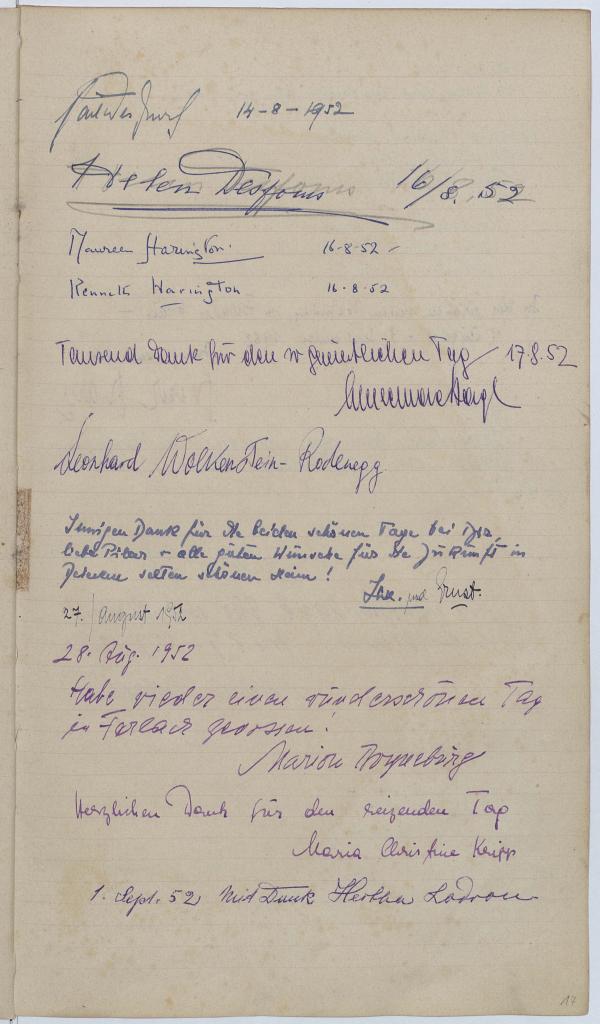 14-8-1952
Helen 16/8. 52
Maureen Harington. 16-8-52 -
Kenneth Harington 16.8.52
Tausend Dank für den so gemütlichen Tag 17.8.52
Leonhard Wolkenstein-Rodenegg
Innigen Dank für die beiden schönen Tage bei Dir,
liebe Pilar u alle guten Wünsche für die Zukunft in
Deinem selten schönen Heim!
und Ernst.
27./August 1952
28. Aug. 1952
Habe wieder einen wunderschönen Tag
in genossen!
Marion Boyneburg
Herzlichen Dank für den reizenden Tag
Maria Christine Kripp
1. Sept. 52 Mit Dank Hertha Lodron
17